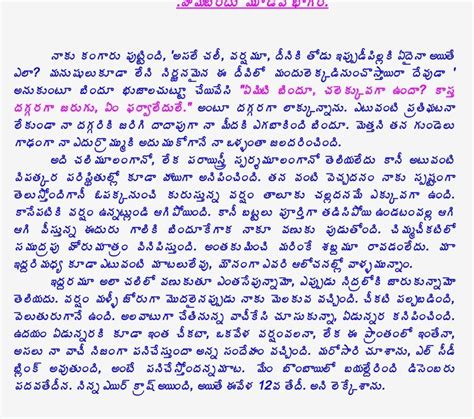 .హిమబిందు మూడవ భాగం.
నాకు కంగారు పుట్టింది, 'అసలే చలీ, వర్షమూ, దీనికి తోడు ఇప్పుడీపిల్లకి ఏదైనా అయితే
ఎలా? మనుషులుకూడా లేని నిర్జనమైన ఈ దీవిలో మందులెక్కడినుంచొస్తాయిరా దేవుడా '
అనుకుంటూ బిందూ భుజాలచుట్టూ చేయివేసి "ఏమిటి బిందూ, చలెక్కువగా ఉందా? కాస్త
దగ్గరగా జరుగు, ఏం ఫర్వాలేదులే." అంటూ దగ్గరగా లాక్కున్నాను. ఎటువంటి ప్రతిఘటనా
లేకుండా నా దగ్గరికి జరిగి దాదాపుగా నా మీదకి ఎగబాకింది బిందూ. మెత్తని తన గుండెలు
గాఢంగా నా ఎదుర్రొమ్ముకి అదుముకోగానే నా ఒళ్ళంతా జలదరించింది.
అది చలిమూలంగానో, లేక పరాయిస్త్రీ స్పర్శమూలంగానో తెలియదేలేదు కానీ అటువంటి
విపత్కర పరిస్థితుల్లో కూడా హాయిగా అనిపించింది. తన వంటి వెచ్చదనం నాకు స్పష్టంగా
తెలుస్తోందిగానీ ఓపక్కనుంచి కురుస్తున్న వర్షం తాలూకు చల్లదనమే ఎక్కువగా ఉంది.
కాసేపటికి వర్షం ఉన్నట్లుండి ఆగిపోయింది. కానీ బట్టలు పూర్తిగా తడిసిపోయి ఉండటంవల్ల ఆగి
ఆగి వీస్తున్న ఈదురు గాలికి బిందూకేగాక నాకూ వణుకు పుడుతోంది. చిమ్మచీకటిలో
సముద్రపు హోరుమాత్రం వినిపిస్తుంది. అంతకుమించి మరింకే శబ్దమూ రావడంలేదు. మా
ఇద్దరిమధ్య కూడా ఎటువంటి మాటలులేవు, మౌనంగా ఎవరి ఆలోచనల్లో వాళ్ళమున్నాం.
ఇద్దరమూ అలా చలిలో వణుకుతూ ఎంతసేపున్నామో, ఎప్పుడు నిద్రలోకి జారుకున్నామో
తెలియదు. వర్షం మళ్ళీ జోరుగా మొదలైనప్పుడు నాకు మెలకువ వచ్చింది. చీకటి పల్చబడింది,
వెలుతురుగానే ఉంది. అలవాటుగా చేతినున్న వాచీకేసి చూసుకున్నా, ఏడున్నర కనిపించింది.
ఉదయం ఏడున్నరకి కూడా ఇంత చీకటా, ఒకవేళ వర్షంవలనా, లేక ఈ ప్రాంతంలో ఇంతేనా,
అసలు నా వాచీ నిజంగా పనిచేస్తుందా అన్న సందేహం వచ్చింది. మరోసారి చూశాను, ఎల్ సీడీ
బ్లింక్ అవుతుంది, అంటే పనిచేస్తోందన్నమాట. మేం బొంబాయిలో బయల్దేరింది డిసెంబరు
పదవతేదీన. నిన్న ఎయిర్ క్రాష్ అయింది, అయితే ఈవేళ 12వ తేదీ. అని లెక్కేశాను.